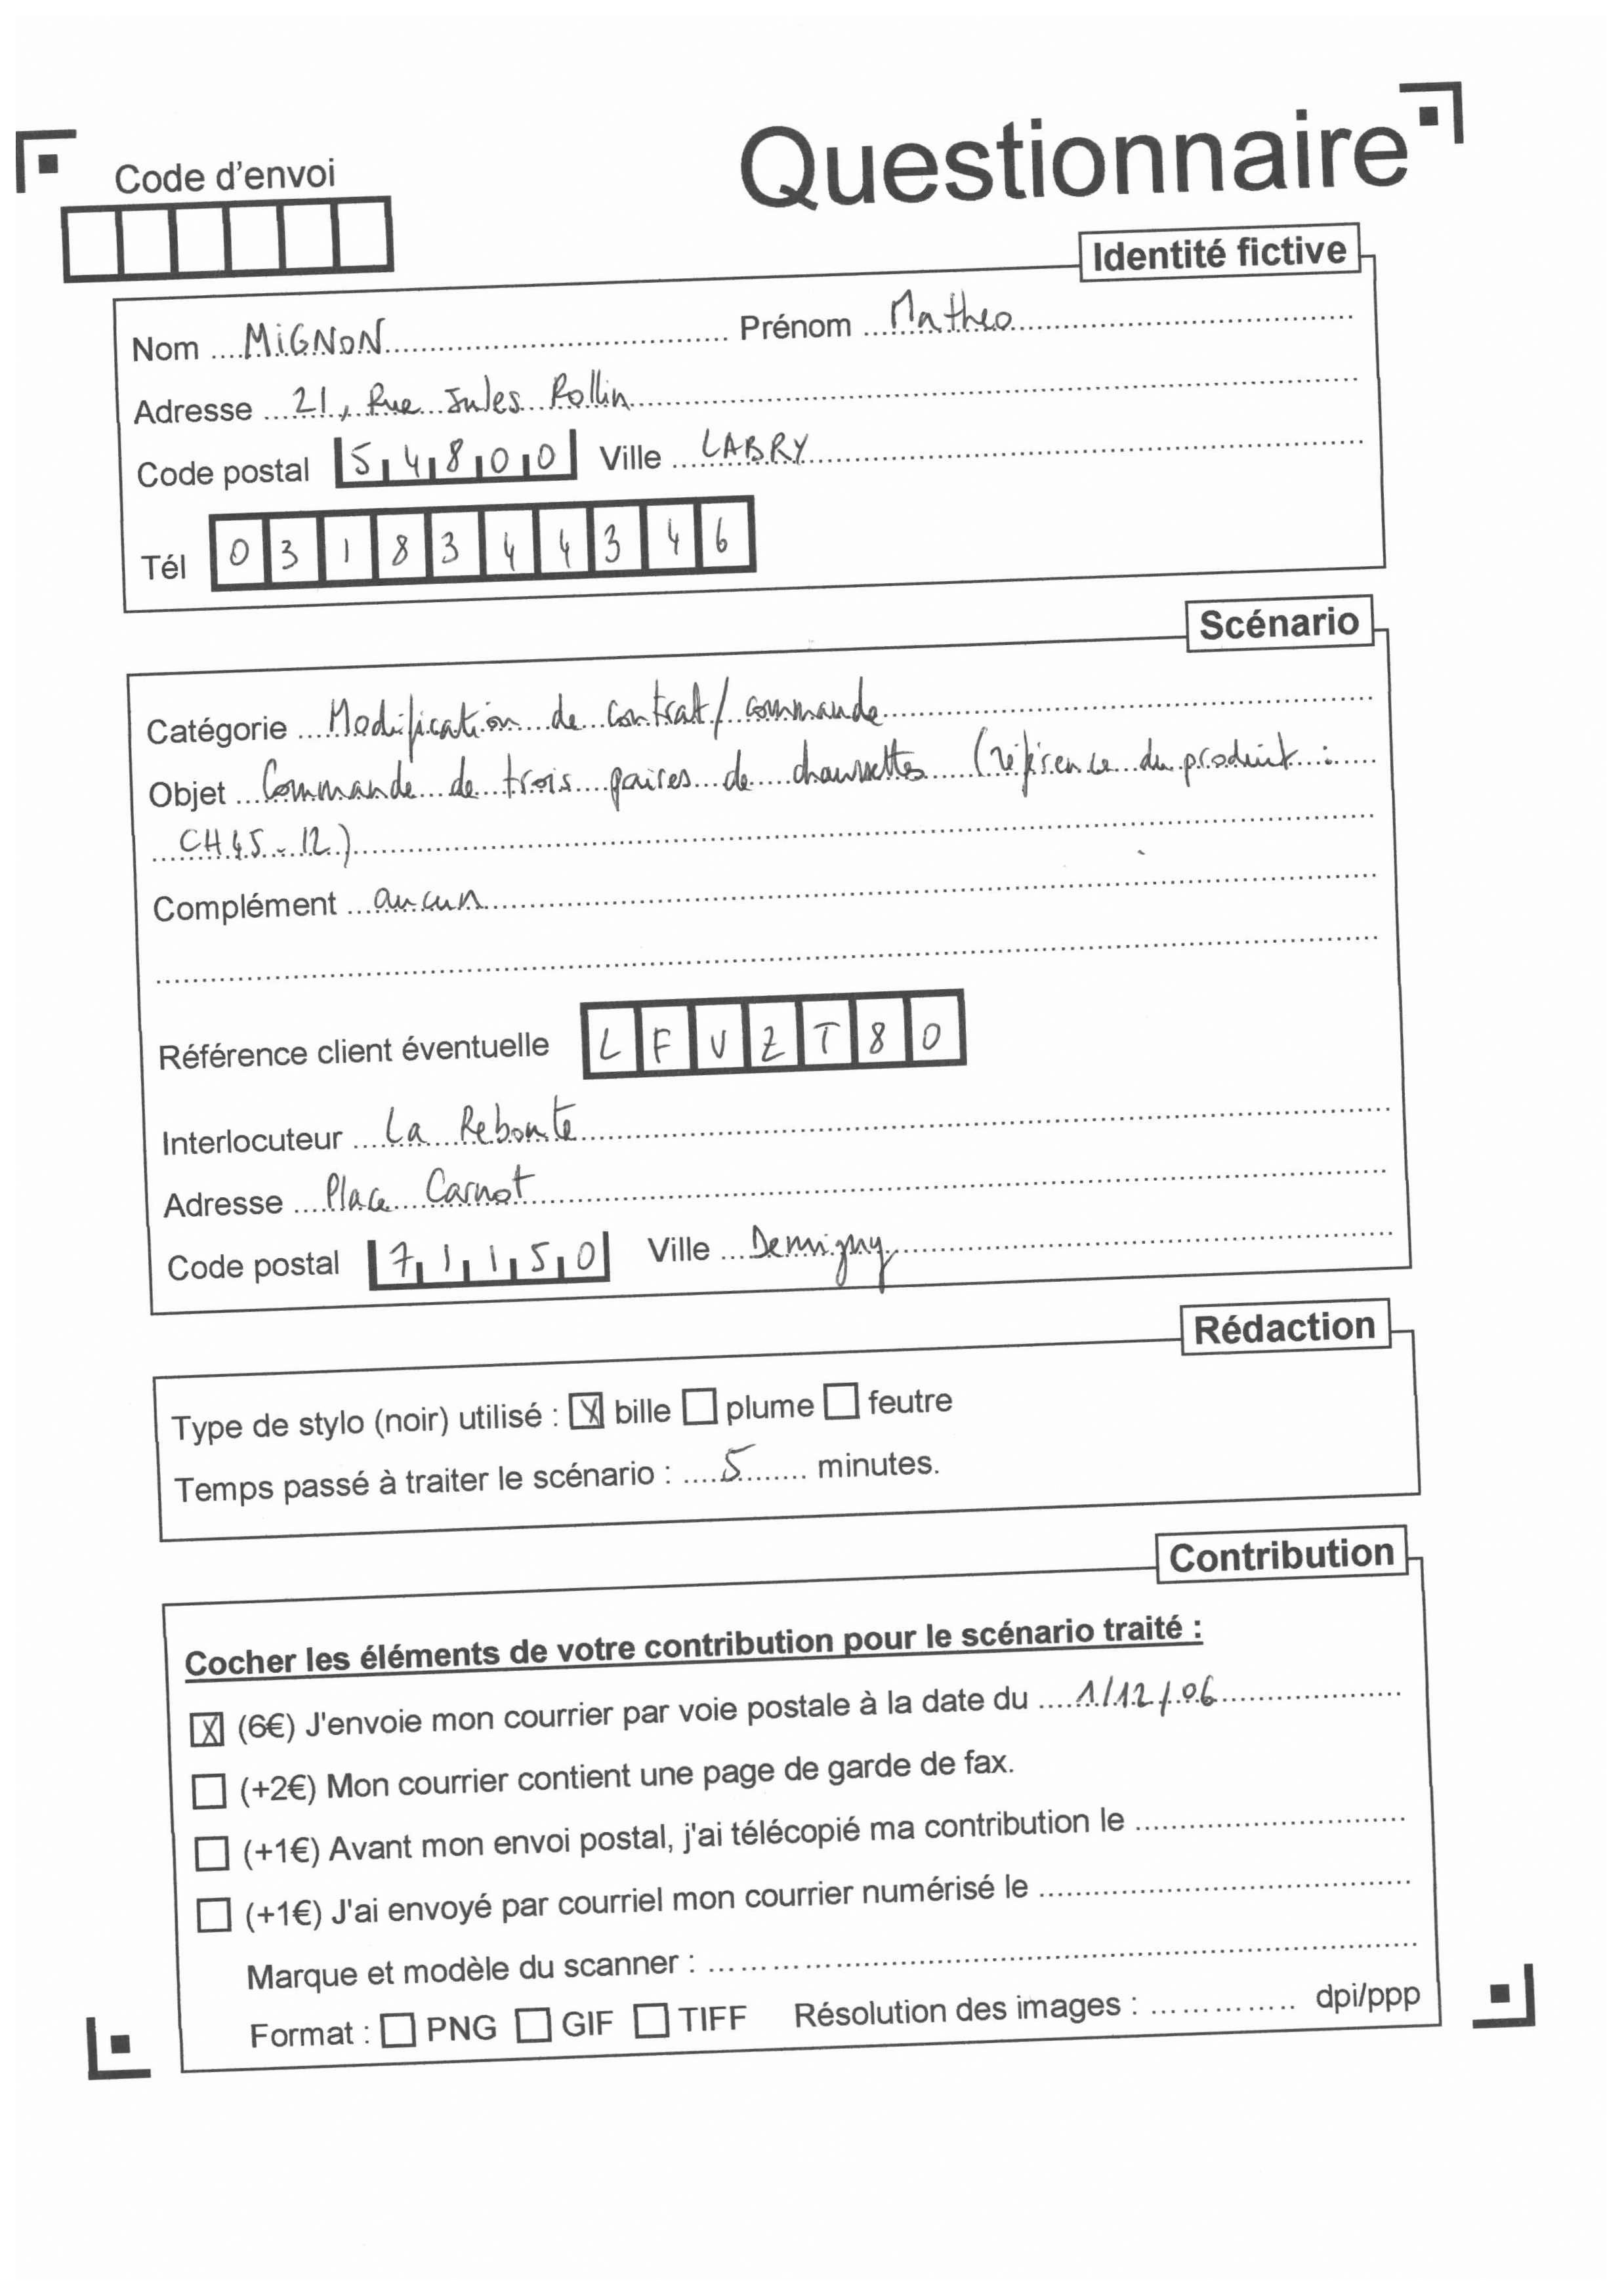 Questionnaire
Code d'envoi
Identité fictive
Nom MiGNON Prénom Matheo
Adresse 21, Rue Jules Rollin
Code postal 54800 Ville LABRY
Tél 0318344346
Scénario
Catégorie Modification de contrat/commande
Objet Commande de trois paires de chaussettes (référence du produit :
CH45-12)
Complément aucun
Référence client éventuelle LFVZT80
Interlocuteur La Reboute
Adresse Place Carnot
Code postal 71150 Ville Demigny
Rédaction
Type de stylo (noir) utilisé : ☒ bille ☐ plume ☐ feutre
Temps passé à traiter le scénario : 5 minutes.
Contribution
Cocher les éléments de votre contribution pour le scénario traité :
☒ (6€) J'envoie mon courrier par voie postale à la date du 1/12/06
☐ (+2€) Mon courrier contient une page de garde de fax.
☐ (+1€) Avant mon envoi postal, j'ai télécopié ma contribution le
☐ (+1€) J'ai envoyé par courriel mon courrier numérisé le
Marque et modèle du scanner :
Format : ☐ PNG ☐ GIF ☐ TIFF Résolution des images : dpi/ppp